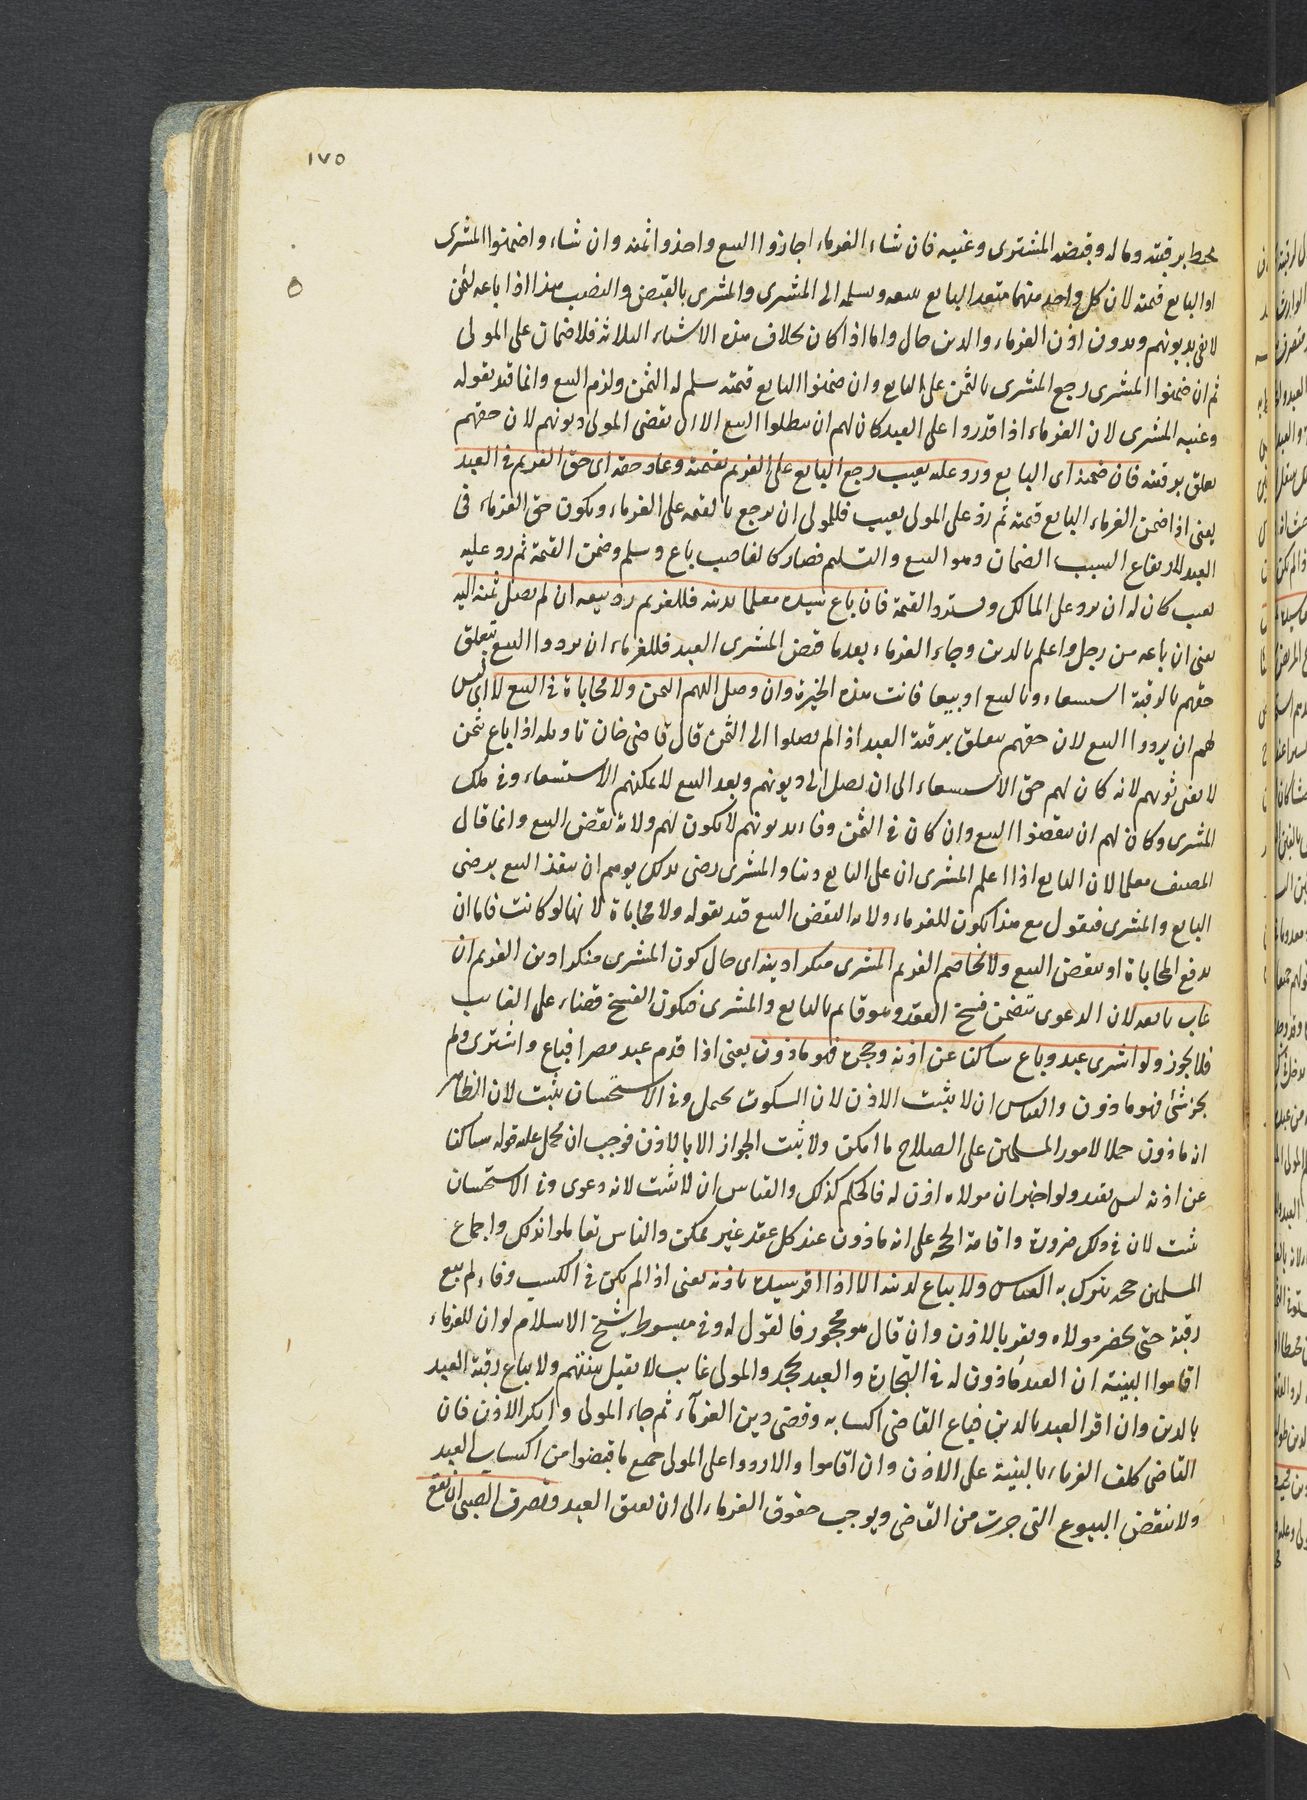 ١٧٥
يحيط برقبته وماله وقبضه المشترى وغيبه فان شاء الغرماء اجازوا البيع واخذوا ثمنه وان شاءوا ضمنوا المشترى
او البايع قيمته لان كل واحد منهما متعد البايع ببيعه وتسليمه الى المشترى والمشترى بالقبض والتغييب هذا اذا باعه بثمن
لا يفى بديونهم وبدون اذن الغرماء والدين حال واما اذا كان بخلاف هذه الاشياء الثلاثة فلا ضمان على المولى
ثم ان ضمنوا المشترى رجع المشترى بالثمن على البايع وان ضمنوا البايع قيمته سلم له الثمن ولزم البيع وانما قيد بقوله
وغيبه المشترى لان الغرماء اذا قدروا على العبد كان لهم ان يبطلوا البيع الا ان يقضى المولى ديونهم لان حقهم
تعلق برقبته فان ضمنه اى البايع ورد عليه بعيب رجع البايع على الغريم بقيمته وعاد حقه اى حق الغريم فى العبد
يعنى اذا ضمن الغرماء البايع قيمته ثم رد على المولى بعيب فللمولى ان يرجع بالقيمة على الغرماء ويكون حق الغرماء فى
العبد لارتفاع السبب الضمان وهو البيع والتسليم فصار كالغاصب باع وسلم وضمن القيمة ثم رد عليه
بعيب كان له ان يرد على المالك ويسترد القيمة فان باع سيده معلما بدينه فللغريم رد بيعه ان لم يصل ثمنه اليه
يعنى ان باعه من رجل واعلم بالدين وجاء الغرماء بعد ما قبض المشترى العبد فللغرماء ان يردوا البيع لتعلق
حقهم بالرقبة استسعاء وبالبيع او بيعا فاتت هذه الخيرة وان وصل اليهم الثمن ولا محاباة فى البيع لا اى ليس
لهم ان يردوا البيع لان حقهم يتعلق برقبة العبد اذا لم يصلوا الى الثمن قال قاضى خان تاويله اذا باع بثمن
لا يفى ديونهم لانه كان لهم حق الاستسعاء الى ان يصل الى ديونهم وبعد البيع لا يمكنهم الاستسعاء وفى ملك
المشترى وكان لهم ان ينقضوا البيع وان كان فى الثمن وفاء بديونهم لا يكون لهم ولاية نقض البيع وانما قال
المصنف معلما لان البايع اذا اعلم المشترى ان على البايع دينا والمشترى رضى بذلك يوهم ان ينفذ البيع برضى
البايع والمشترى فيقول مع هذا يكون للغرماء ولاية النقض البيع قيد بقوله ولا محاباة لانها لو كانت فاما ان
يدفع المحاباة او ينقض البيع ولا يخاصم الغريم المشترى منكرا دينه اى حال كون المشترى منكرا دين الغريم ان
غاب بايعه لان الدعوى يتضمن فسخ العقد وهو قايم بالبايع والمشترى فيكون الفسخ قضاء على الغايب
فلا يجوز ولو اشترى عبد وباع ساكتا عن اذنه وحجره فهو ماذون يعنى اذا قدم عبد مصرا فباع واشترى ولم
يخبر بشئ فهو ماذون والقياس ان لا يثبت الاذن لان السكوت يحتمل وفى الاستحسان يثبت لان الظاهر
انه ماذون حملا لامور المسلمين على الصلاح ما امكن ولا يثبت الجواز الا بالاذن فوجب ان يحمل عليه قوله ساكتا
عن اذنه ليس بقيد ولو اخبر ان مولاه اذن له فالحكم كذلك والقياس ان لا يثبت لانه دعوى وفى الاستحسان
يثبت لان فى ذلك ضرورة واقامة الحجة على انه ماذون عند كل عقد غير ممكن والناس تعاملوا بذلك واجماع
المسلمين حجة يترك به القياس ولا يباع لدينه الا اذا اقر سيده باذنه يعنى اذا لم يكن فى الكسب وفاء لم يبع
رقبته حتى يحضر مولاه ويقر بالاذن وان قال هو محجور فالقول له وفى مبسوط شيخ الاسلام لو ان للغرماء
اقاموا البينة ان العبد ماذون له فى التجارة والعبد يجحد والمولى غايب لا يقبل بينتهم ولا يباع رقبة العبد
بالدين وان اقر العبد بالدين فباع القاضى اكسابه وقضى دين الغرماء ثم جاء المولى وانكر الاذن فان
القاضى كلف الغرماء بالبينة على الاذن وان اقاموا والا ردوا على المولى جميع ما قبضوا من اكساب العبد
ولا ينقض البيوع التى جرت من القاضى ويوجب حقوق الغرماء الى ان يعتق العبد وتصرف الصبى ان نفع